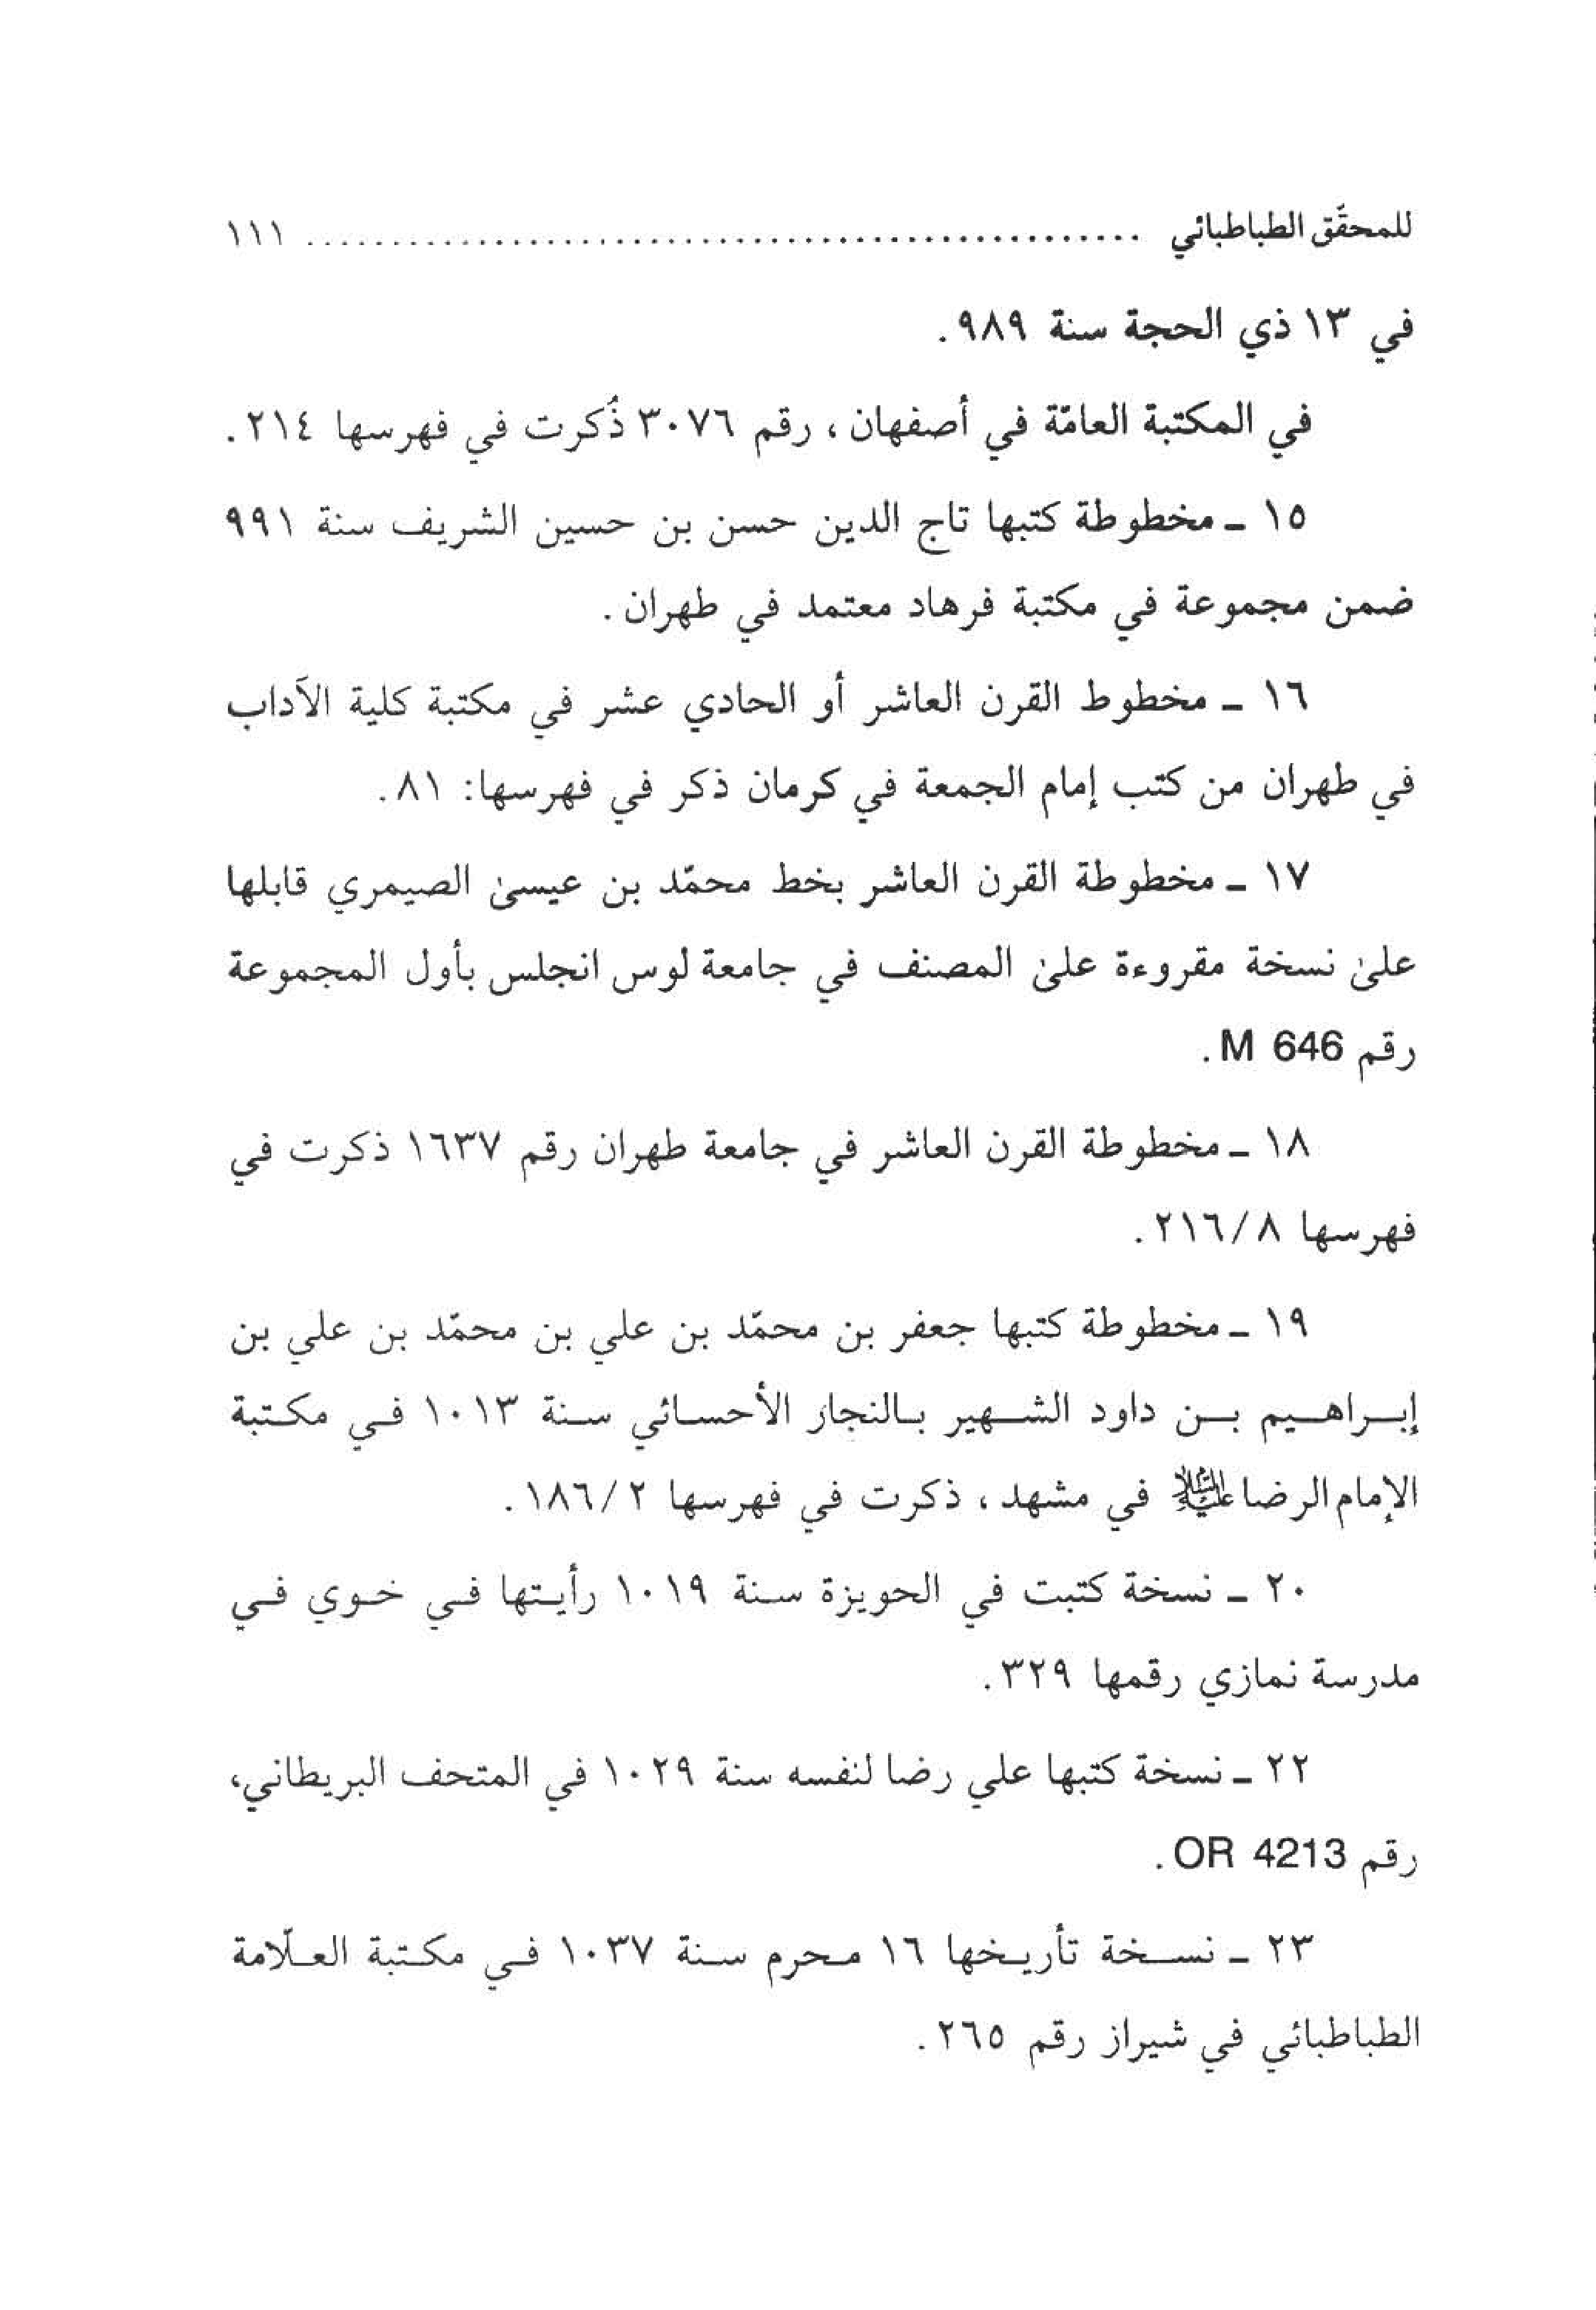 للمحقّق الطباطبائي ................................................ ١١١
في ١٣ ذي الحجة سنة ٩٨٩.
في المكتبة العامّة في أصفهان ، رقم ٣٠٧٦ ذُكرت في فهرسها ٢١٤.
١٥ ـ مخطوطة كتبها تاج الدين حسن بن حسين الشريف سنة ٩٩١
ضمن مجموعة في مكتبة فرهاد معتمد في طهران.
١٦ ـ مخطوط القرن العاشر أو الحادي عشر في مكتبة كلية الآداب
في طهران من كتب إمام الجمعة في كرمان ذكر في فهرسها: ٨١.
١٧ ـ مخطوطة القرن العاشر بخط محمّد بن عيسىٰ الصيمري قابلها
علىٰ نسخة مقروءة علىٰ المصنف في جامعة لوس انجلس بأول المجموعة
رقم M 646.
١٨ ـ مخطوطة القرن العاشر في جامعة طهران رقم ١٦٣٧ ذكرت في
فهرسها ٨/٢١٦.
١٩ ـ مخطوطة كتبها جعفر بن محمّد بن علي بن محمّد بن علي بن
إبراهيم بن داود الشهير بالنجار الأحسائي سنة ١٠١٣ في مكتبة
الإمام الرضا عليه السلام في مشهد ، ذكرت في فهرسها ٢/١٨٦.
٢٠ ـ نسخة كتبت في الحويزة سنة ١٠١٩ رأيتها في خوي في
مدرسة نمازي رقمها ٣٢٩.
٢٢ ـ نسخة كتبها علي رضا لنفسه سنة ١٠٢٩ في المتحف البريطاني،
رقم OR 4213.
٢٣ ـ نسخة تأريخها ١٦ محرم سنة ١٠٣٧ في مكتبة العلّامة
الطباطبائي في شيراز رقم ٢٦٥.